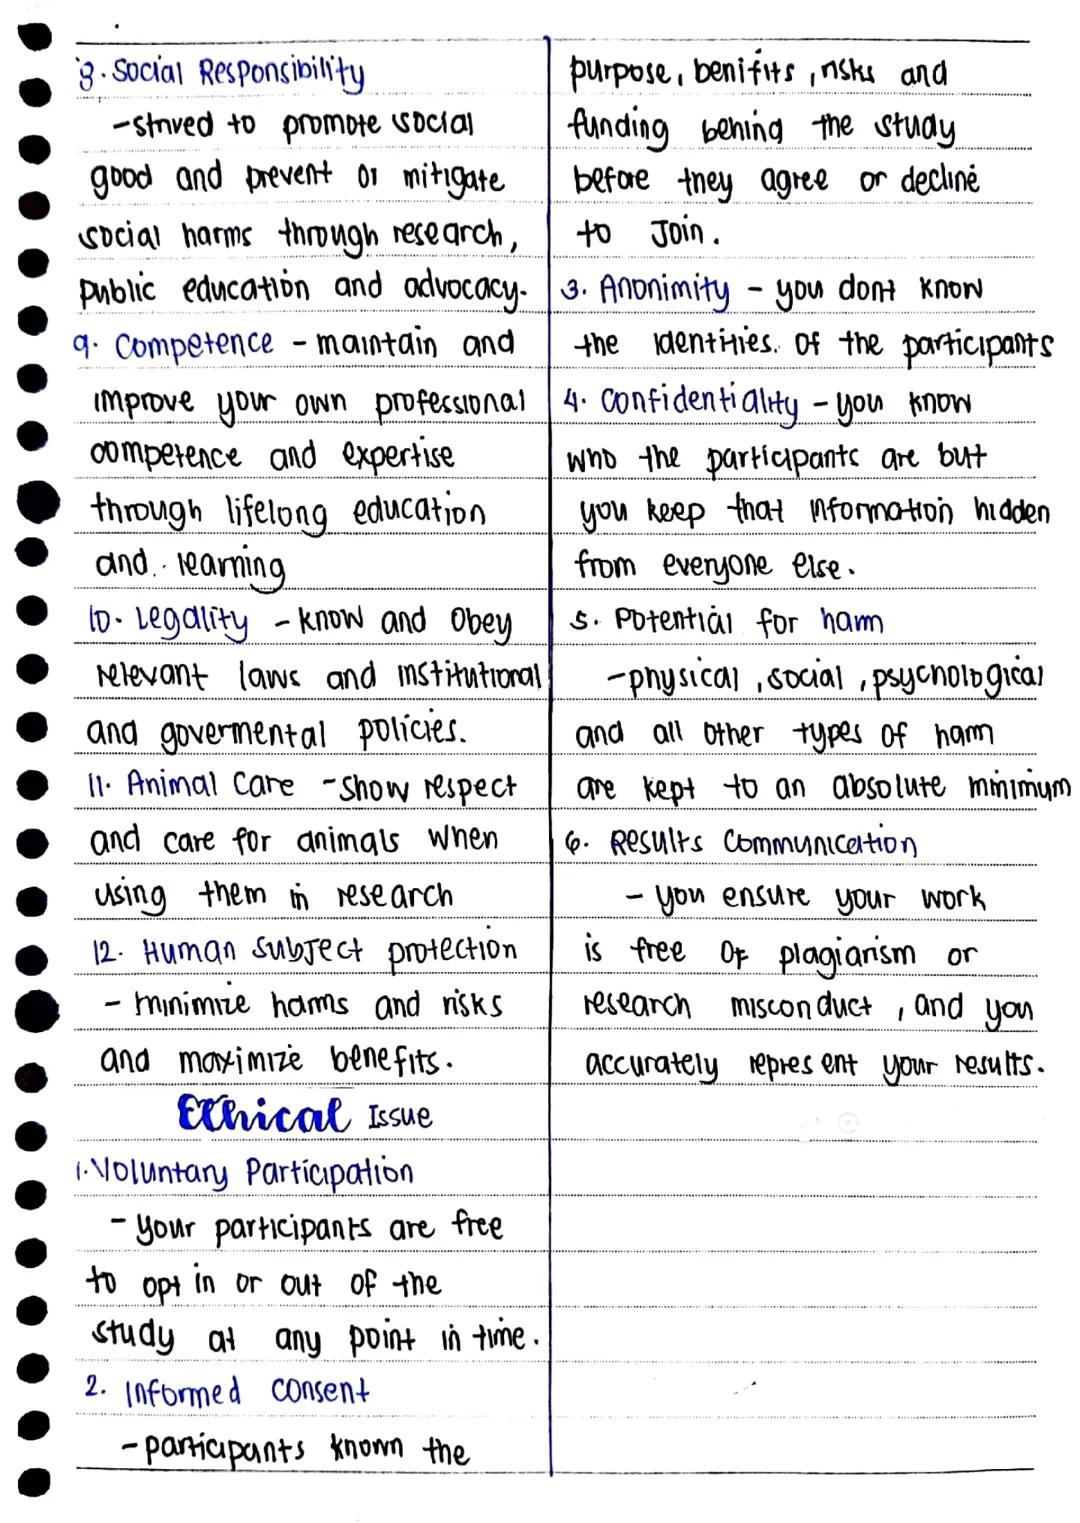 8. Social Responsibility
-strived to promote social
good and prevent or mitigate
social harms through research,
public education and advocacy.
9. Competence - maintain and
improve your own professional
competence and expertise
through lifelong education
and learning
10. Legality - know and Obey
relevant laws and institutional
and govermental policies.
11. Animal Care - Show respect
and care for animals when
using them in research
12. Human Subject protection
- minimize harms and risks
and maximize benefits.
Ethical Issue
1. Voluntary Participation
- your participants are free
to opt in or out of the
study at any point in time.
2. Informed consent
- participants known the
purpose, benifits, risks and
funding behing the study
before they agree or decline
to Join.
3. Anonimity - you dont know
the identities. Of the participants
4. Confidentiality - you know
who the participants are but
you keep that information hidden
from everyone else.
5. Potential for harm
- physical, social, psychological
and all other types of harm
are kept to an absolute minimum
6. Results Communication
- you ensure your work
is free Of plagiarism or
research misconduct, and you
accurately represent your results.